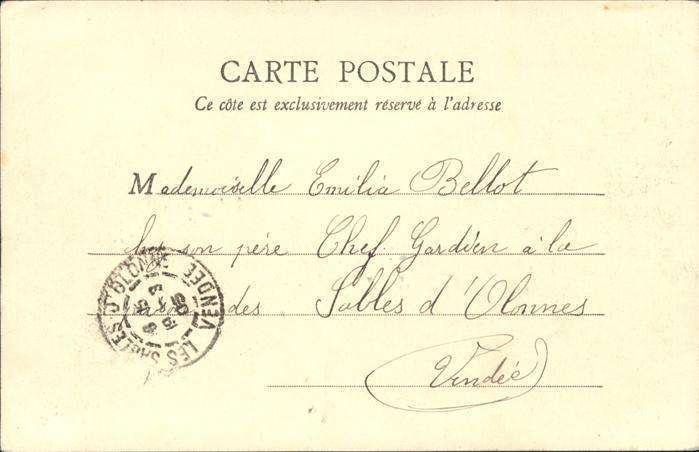 CARTE POSTALE
Ce côte est exclusivement réservé à l'adresse
Mademoiselle Emilia Bellot
son père Chef Gardien à la
des Sables d'Olonnes
Vendée
LES SABLES D'OLONNE VENDÉE